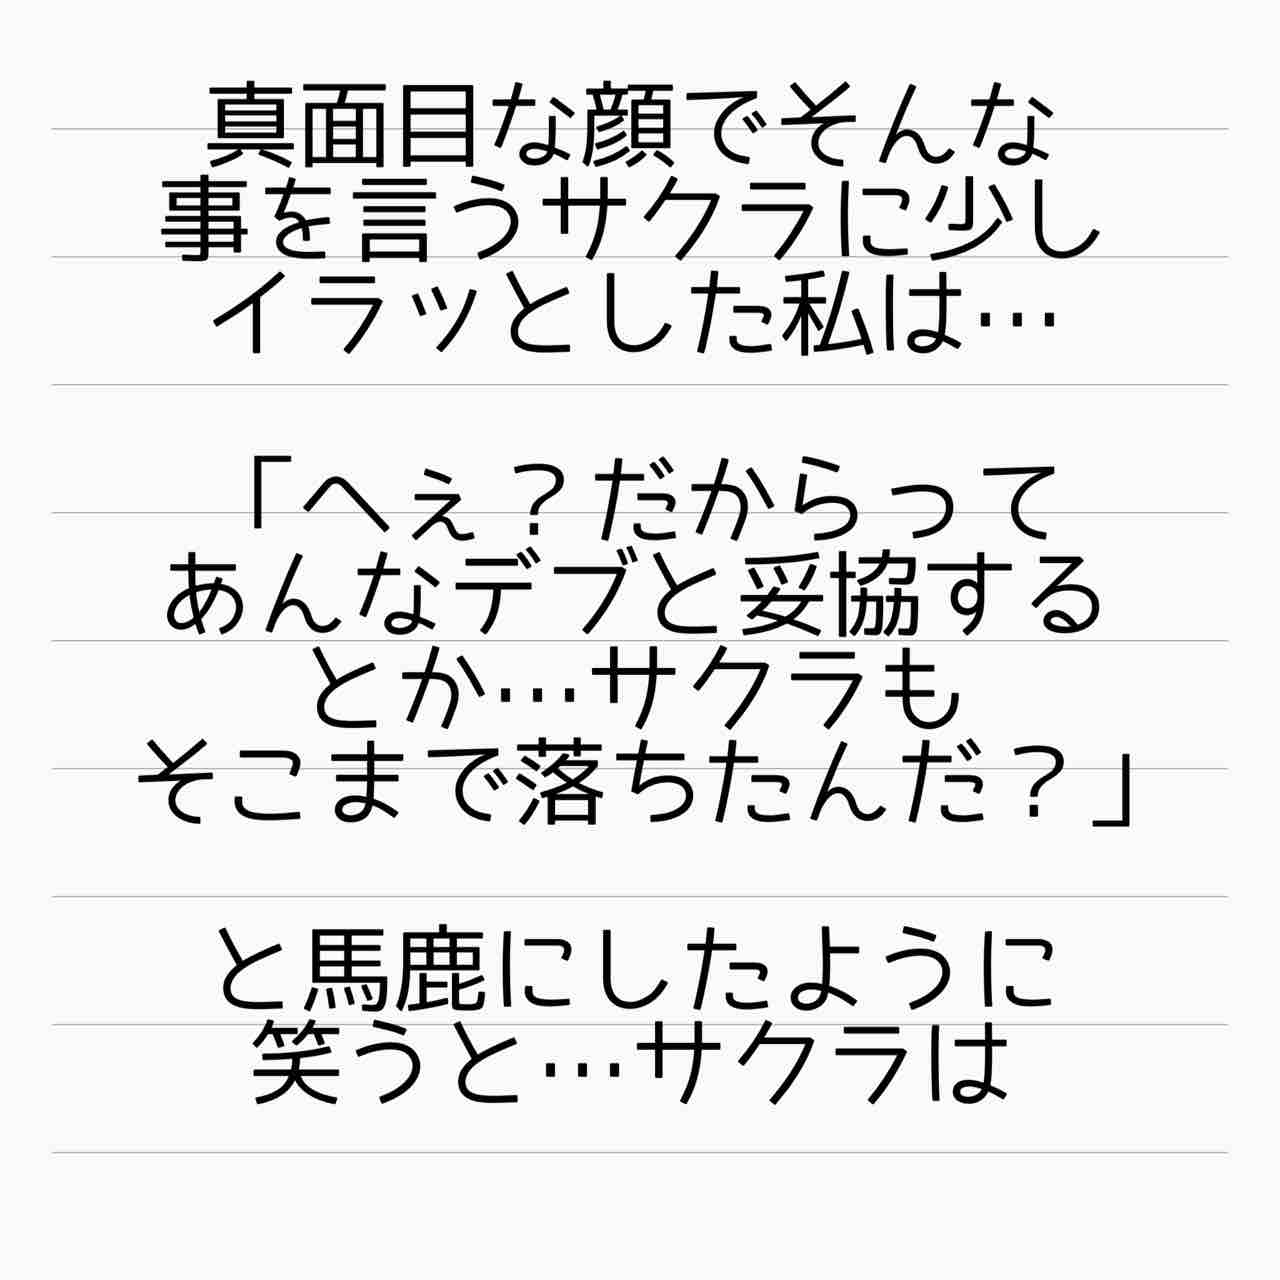 真面目な顔でそんな
事を言うサクラに少し
イラッとした私は…
「へぇ？だからって
あんなデブと妥協する
とか…サクラも
そこまで落ちたんだ？」
と馬鹿にしたように
笑うと…サクラは